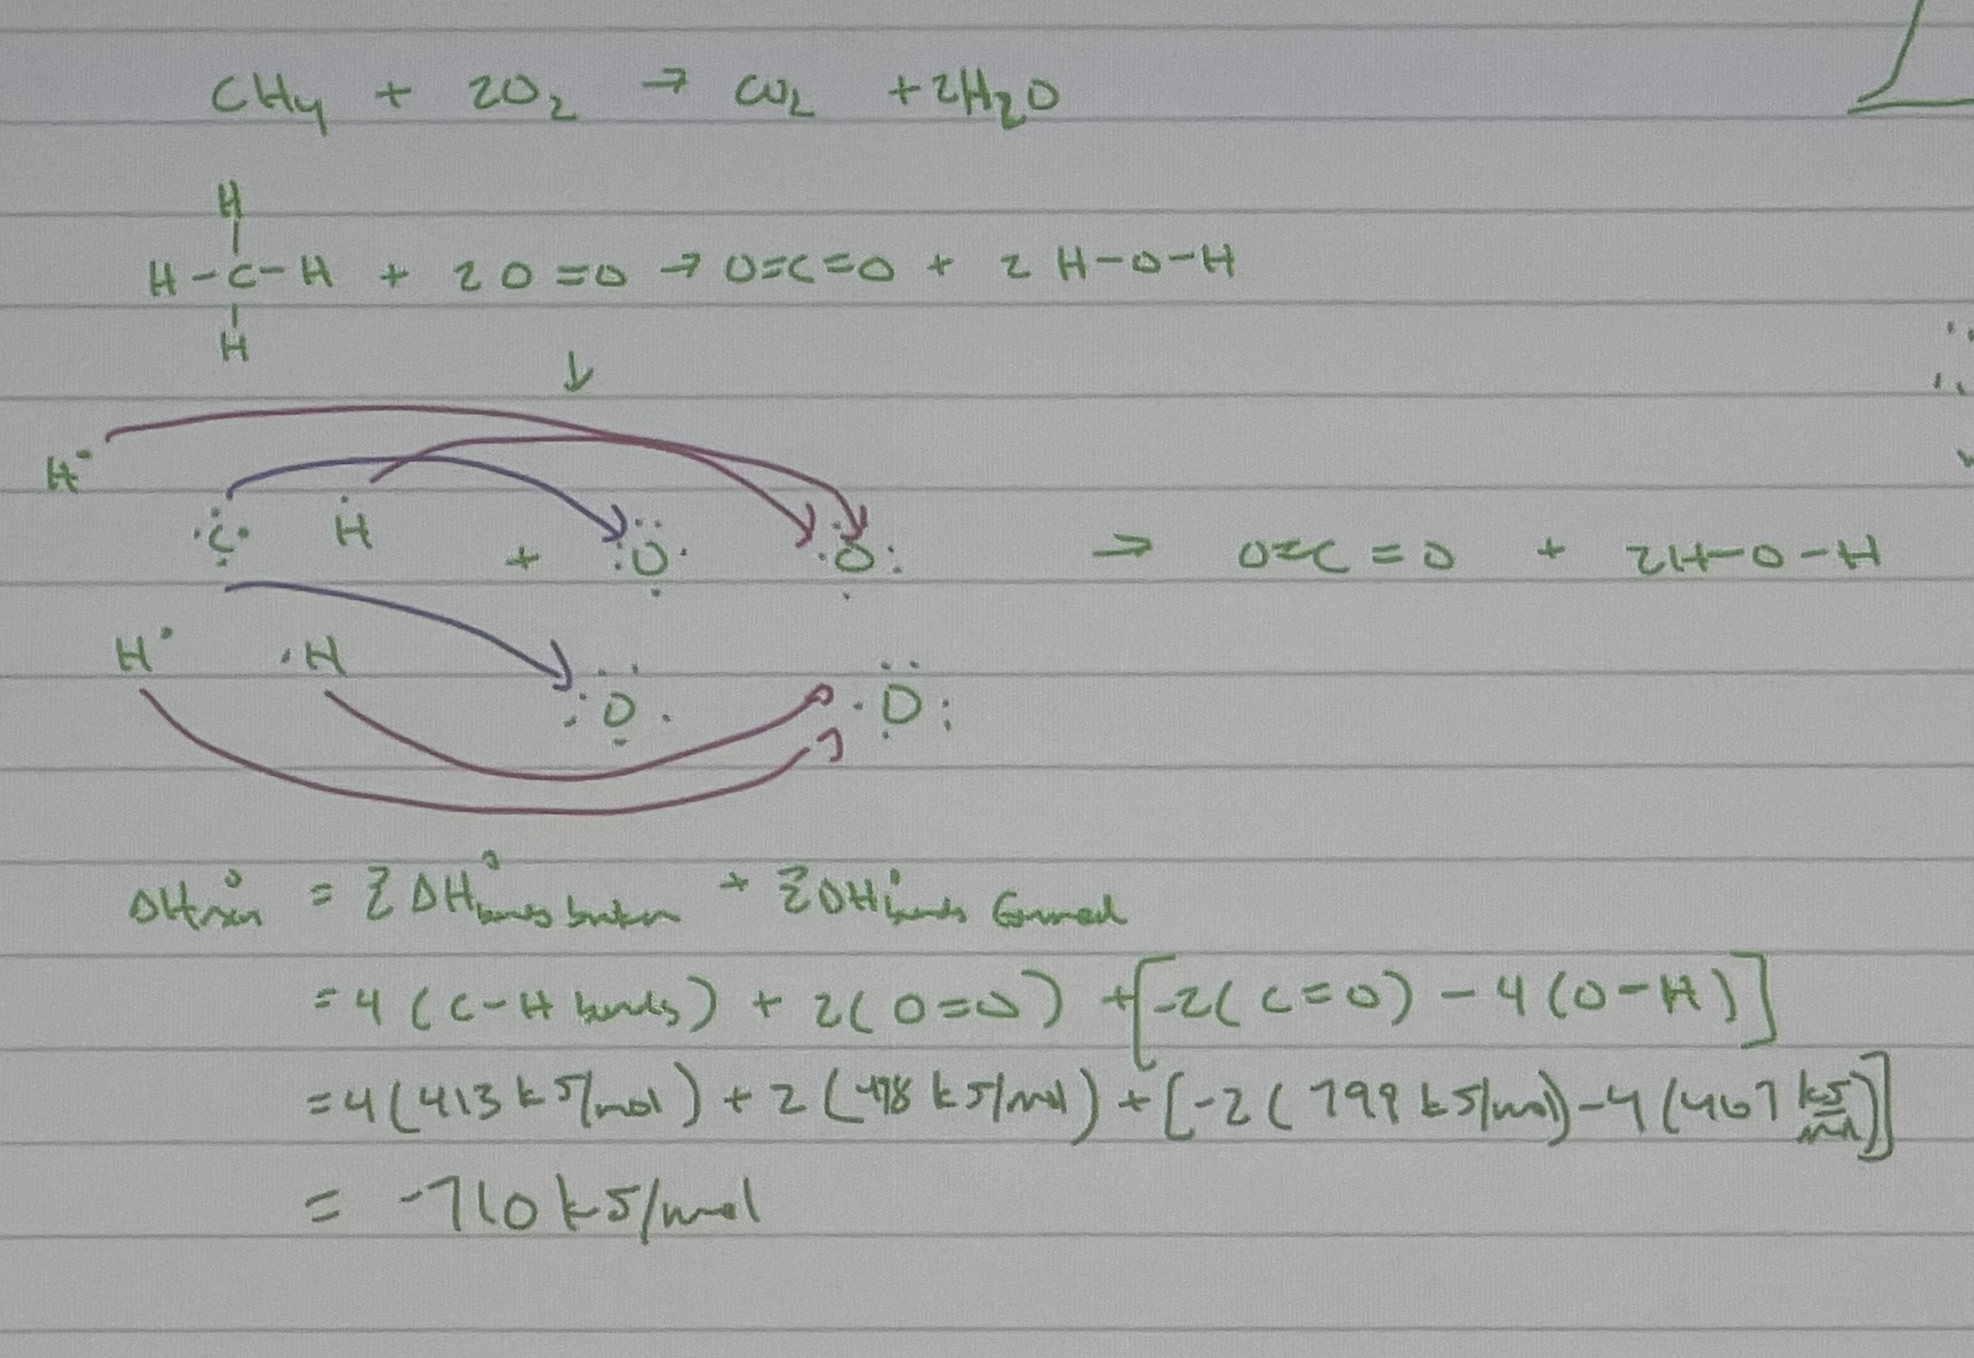 CH4 + 2O2 → CO2 + 2H2O
H
H-C-H + 2 O=O → O=C=O + 2 H-O-H
H
↓
H·
·C· H + :O· ·O: → O=C=O + 2H-O-H
H· ·H :O· ·O:
ΔH°rxn = ΣΔH°bonds broken + ΣΔH°bonds formed
= 4 (C-H bonds) + 2(O=O) + [-2(C=O) - 4(O-H)]
= 4(413 kJ/mol) + 2(498 kJ/mol) + [-2(799 kJ/mol) - 4(467 kJ/mol)]
= -710 kJ/mol